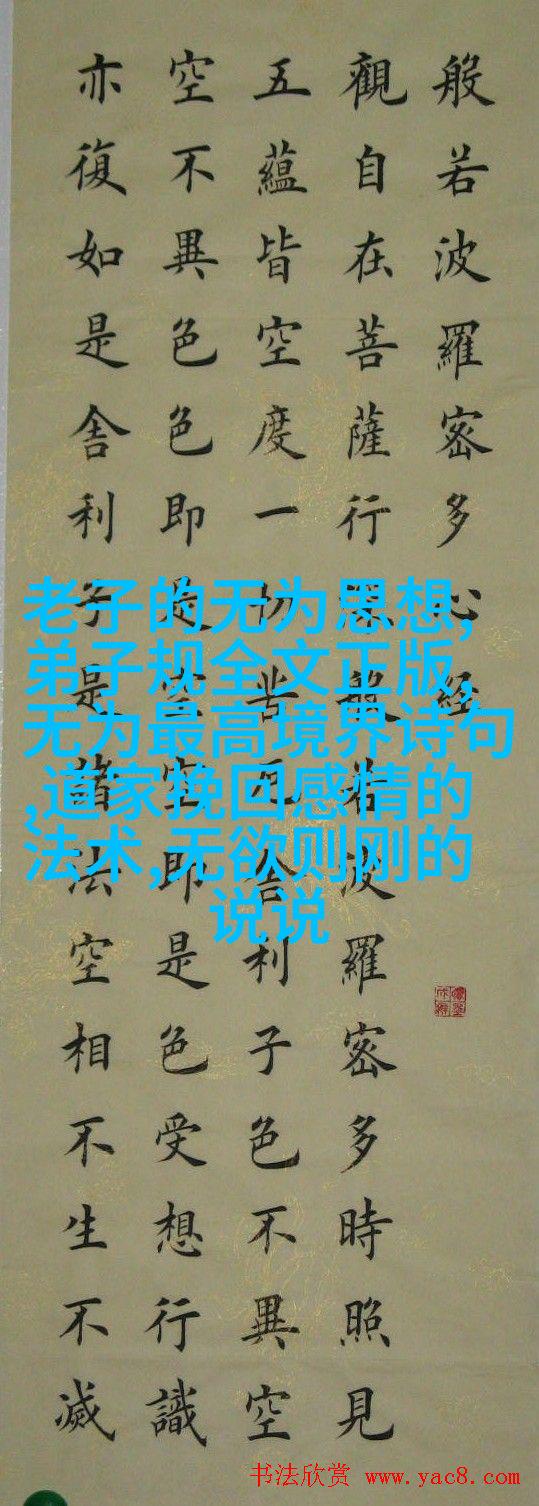 般若波羅密多心經
觀自在菩薩行深般若波羅密多時照見
五蘊皆空度一切苦厄舍利子色不異空
空不異色色即是空空即是色受想行識
亦復如是舍利子是諸法空相不生不滅
老子的无为思想,
弟子规全文正版,
无为最高境界诗句
,道家挽回感情的
法术,无欲则刚的
说说
书法欣赏 www.yac8.com